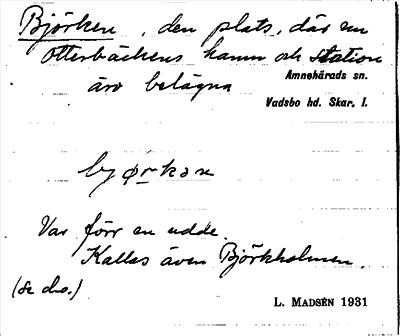 Björken, den plats, där nu
Otterbäckens hamn och station
äro belägna
Amnehärads sn.
Vadsbo hd. Skar. l.
bjørkən
Var förr en udde.
Kallas även Björkholmen.
(Se d.o.)
L. MADSÉN 1931